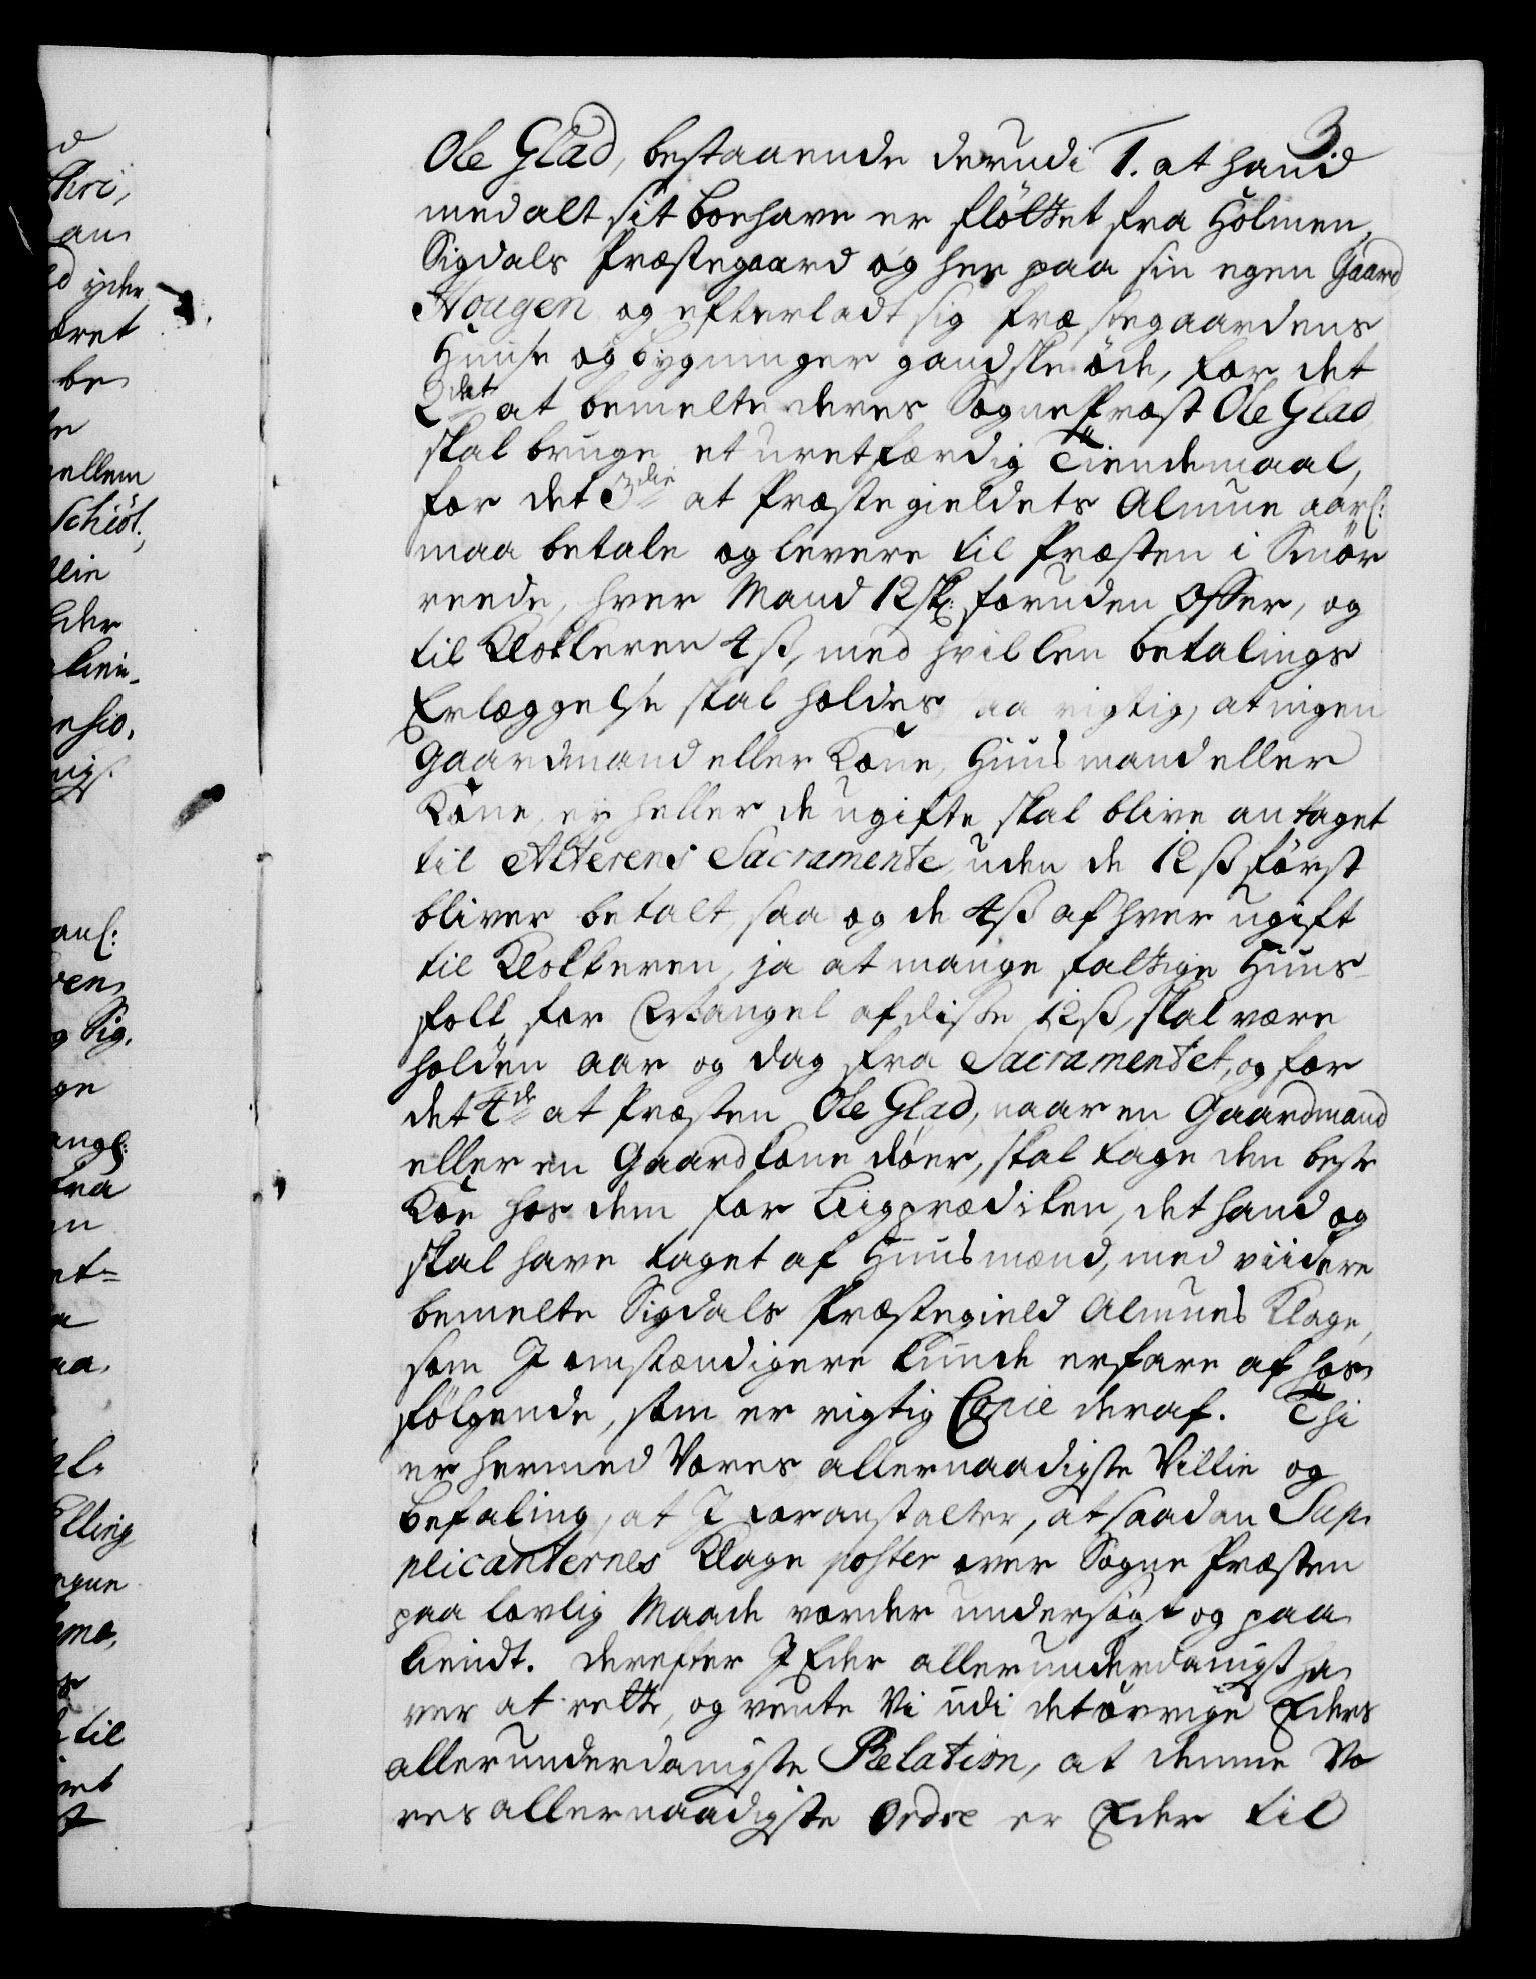 3
Ole Glad, bestaaende derudi 1. at hand
med alt sit boehave er flöttet fra Holmen,
Sigdals Præstegaard og her paa sin egen Gaard
Hougen og efterladt sig Præstegaardens
Huuse og bygninger gandske öde, for det
2det at bemelte deres Sogne Præst Ole Glad
skal bruge et uretfærdig Tiendemaal,
for det 3die at Præstegieldets Almue aarl:
maa betale og levere til Præsten i Smör
reede, hver Mand 12 sk: foruden Offer, og
til Klokkeren 4 ß, med hvilken betalings
Erlæggelse skal holdes saa rigtig, at ingen
Gaardmand eller Kone, Huusmand eller
Kone, ei heller de ugifte skal blive antaget
til Alterens Sacramente, uden de 12 ß först
bliver betalt, saa og de 4 ß af hver ugift
til Klokkeren, ja at mange fattige Huus-
folk for Mangel af disse 12 ß, skal være
holden aar og dag fra Sacramentet, og for
det 4de at Præsten Ole Glad, naar en Gaardmand
eller en Gaardkone döer, skal tage den beste
Koe hos dem for Liigprædiken, det hand og
skal have taget af Huusmænd, med viidere
bemelte Sigdals Præstegield Almues Klage,
som I omstændigere kunde erfare af hos
fölgende, som er rigtig Copie deraf. Thi
er hermed Vores allernaadigste Villie og
befaling, at I foranstalter, at saadan Sup-
plicanternes Klage poster over Sogne Præsten
paa lovlig Maade vorder undersögt og paa
kiendt. derefter I Eder allerunderdanigst ha
ver at rette, og vente Vi udi det övrige Eders
allerunderdanigste Relation, at denne Vo
res allernaadigste Ordre er Eder til